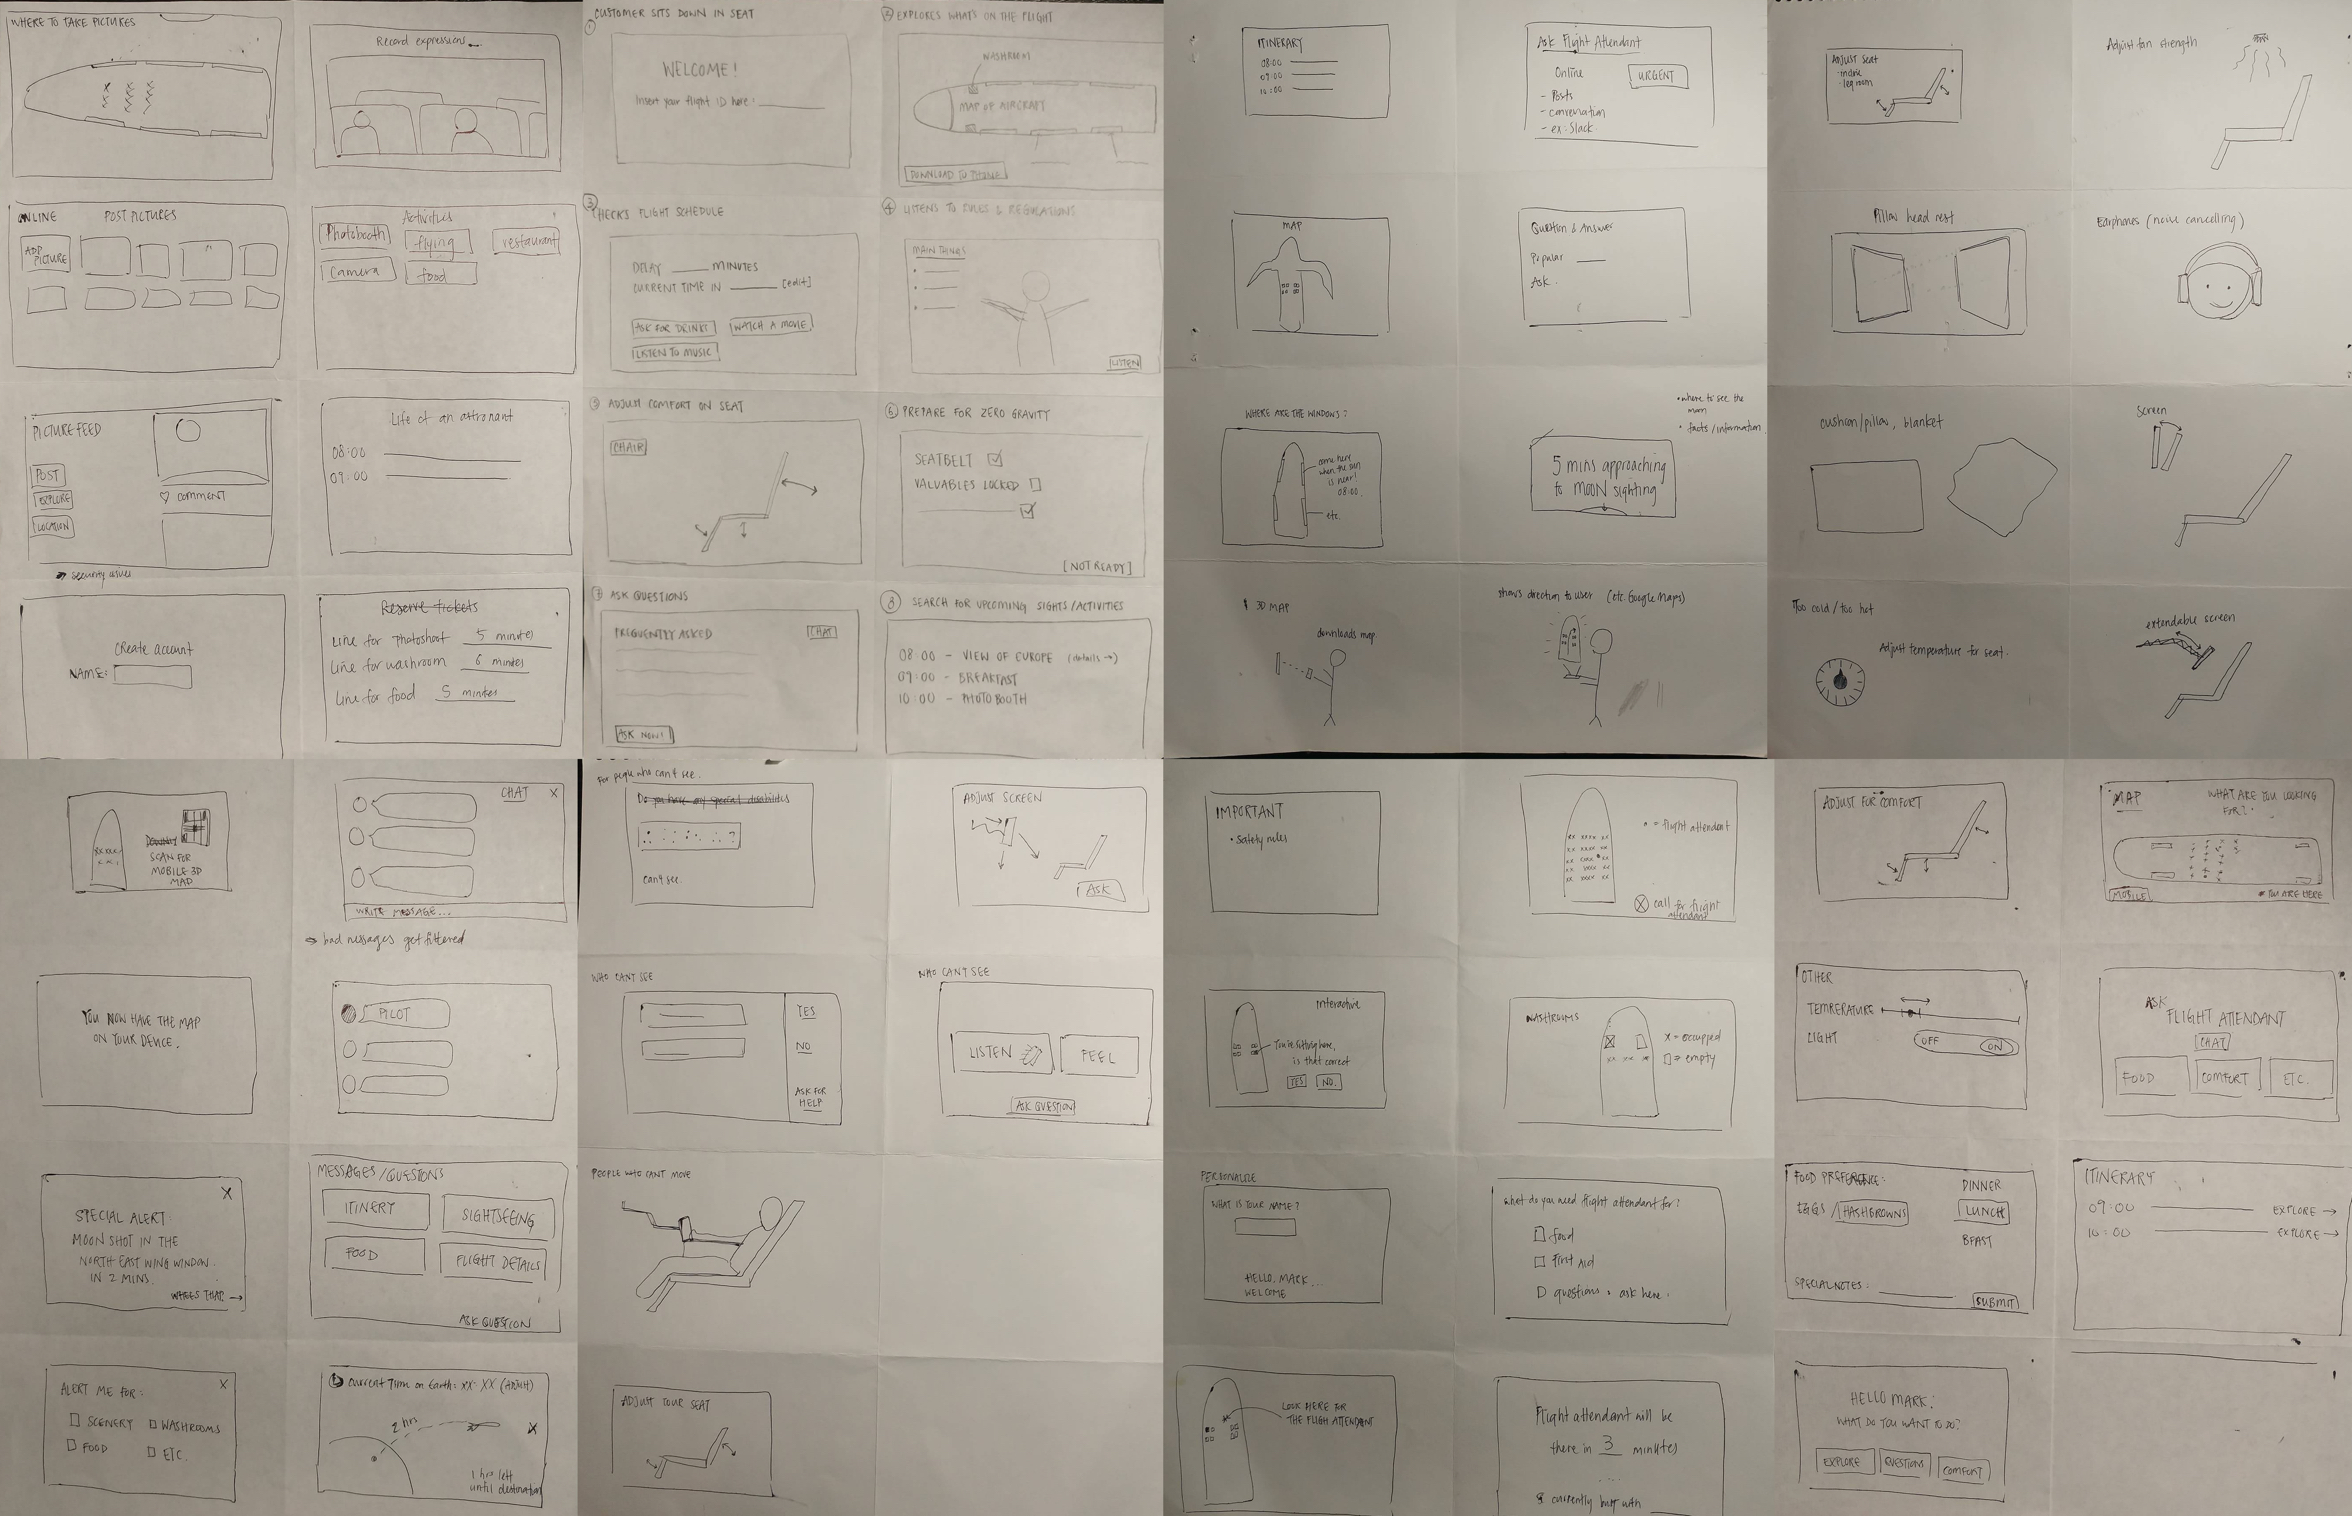 WHERE TO TAKE PICTURES
Record expressions
ONLINE POST PICTURES
ADD
PICTURE
Activities
Photobooth
flying
restaurant
Camera
food
PICTURE FEED
POST
EXPLORE
LOCATION
♡ COMMENT
→ security issues
Life of an astronaut
08:00
09:00
Create account
NAME:
Reserve tickets
Line for photoshoot 5 minutes
Line for washroom 6 minutes
Line for food 5 minutes
① CUSTOMER SITS DOWN IN SEAT
WELCOME!
Insert your flight ID here:
② EXPLORES WHAT'S ON THE FLIGHT
WASHROOM
MAP OF AIRCRAFT
DOWNLOAD TO PHONE
③ CHECKS FLIGHT SCHEDULE
DELAY MINUTES
CURRENT TIME IN [edit]
ASK FOR DRINKS
WATCH A MOVIE
LISTEN TO MUSIC
④ LISTENS TO RULES & REGULATIONS
MAIN THINGS
LISTEN
⑤ ADJUST COMFORT ON SEAT
CHAIR
⑥ PREPARE FOR ZERO GRAVITY
SEATBELT
VALUABLES LOCKED
[NOT READY]
⑦ ASK QUESTIONS
FREQUENTLY ASKED
CHAT
ASK NOW!
⑧ SEARCH FOR UPCOMING SIGHTS/ACTIVITIES
08:00 - VIEW OF EUROPE (details →)
09:00 - BREAKFAST
10:00 - PHOTO BOOTH
ITINERARY
08:00
09:00
10:00
Ask Flight Attendant
Online
URGENT
- Posts
- conversation
- ex: Slack
MAP
QUESTION & ANSWER
Popular
Ask
WHERE ARE THE WINDOWS?
come here
when the sun
is near!
08:00.
etc.
• where to see the
moon
• facts/information
5 mins approaching
to MOON sighting
3D MAP
downloads map.
shows direction to user (etc. Google Maps)
ADJUST Seat
- incline
- leg room
Adjust fan strength
Pillow head rest
Earphones (noise cancelling)
cushion/pillow, blanket
Screen
Too cold / too hot
Adjust temperature for seat.
extendable screen
SCAN FOR
MOBILE 3D
MAP
CHAT X
WRITE MESSAGE...
→ bad messages get filtered
YOU NOW HAVE THE MAP
ON YOUR DEVICE.
PILOT
X
SPECIAL ALERT:
MOON SHOT IN THE
NORTH EAST WING WINDOW
IN 2 MINS.
WHERES THAT →
MESSAGES/QUESTIONS
ITINERY
SIGHTSEEING
FOOD
FLIGHT DETAILS
ASK QUESTION
ALERT ME FOR: X
SCENERY
WASHROOMS
FOOD
ETC.
Current Time on Earth: XX:XX (ADJUST)
2 hrs
1 hrs left
until destination
For people who can't see.
Do you have any special disabilities
?
can't see.
ADJUST SCREEN
ASK
WHO CANT SEE
YES
NO
ASK FOR
HELP
WHO CANT SEE
LISTEN
FEEL
ASK QUESTION
PEOPLE WHO CANT MOVE
ADJUST YOUR SEAT
IMPORTANT
• Safety rules
= flight attendant
call for flight
attendant
Interactive
You're sitting here,
is that correct
YES
NO.
WASHROOMS
X = occupied
□ = empty
PERSONALIZE
WHAT IS YOUR NAME?
HELLO, MARK...
WELCOME
what do you need flight attendant for?
food
First Aid
questions, ask here.
LOOK HERE FOR
THE FLIGH ATTENDANT
Flight attendant will be
there in 3 minutes
currently busy with
ADJUST FOR COMFORT
MAP
WHAT ARE YOU LOOKING
FOR?
MOBILE
YOU ARE HERE
OTHER
TEMPERATURE
LIGHT
OFF
ON
ASK
FLIGHT ATTENDANT
CHAT
FOOD
COMFORT
ETC.
FOOD PREFERENCE:
EGGS / HASHBROWNS
DINNER
LUNCH
BFAST
SPECIAL NOTES:
SUBMIT
ITINERARY
09:00 EXPLORE →
10:00 EXPLORE →
HELLO MARK!
WHAT DO YOU WANT TO DO?
EXPLORE
QUESTIONS
COMFORT